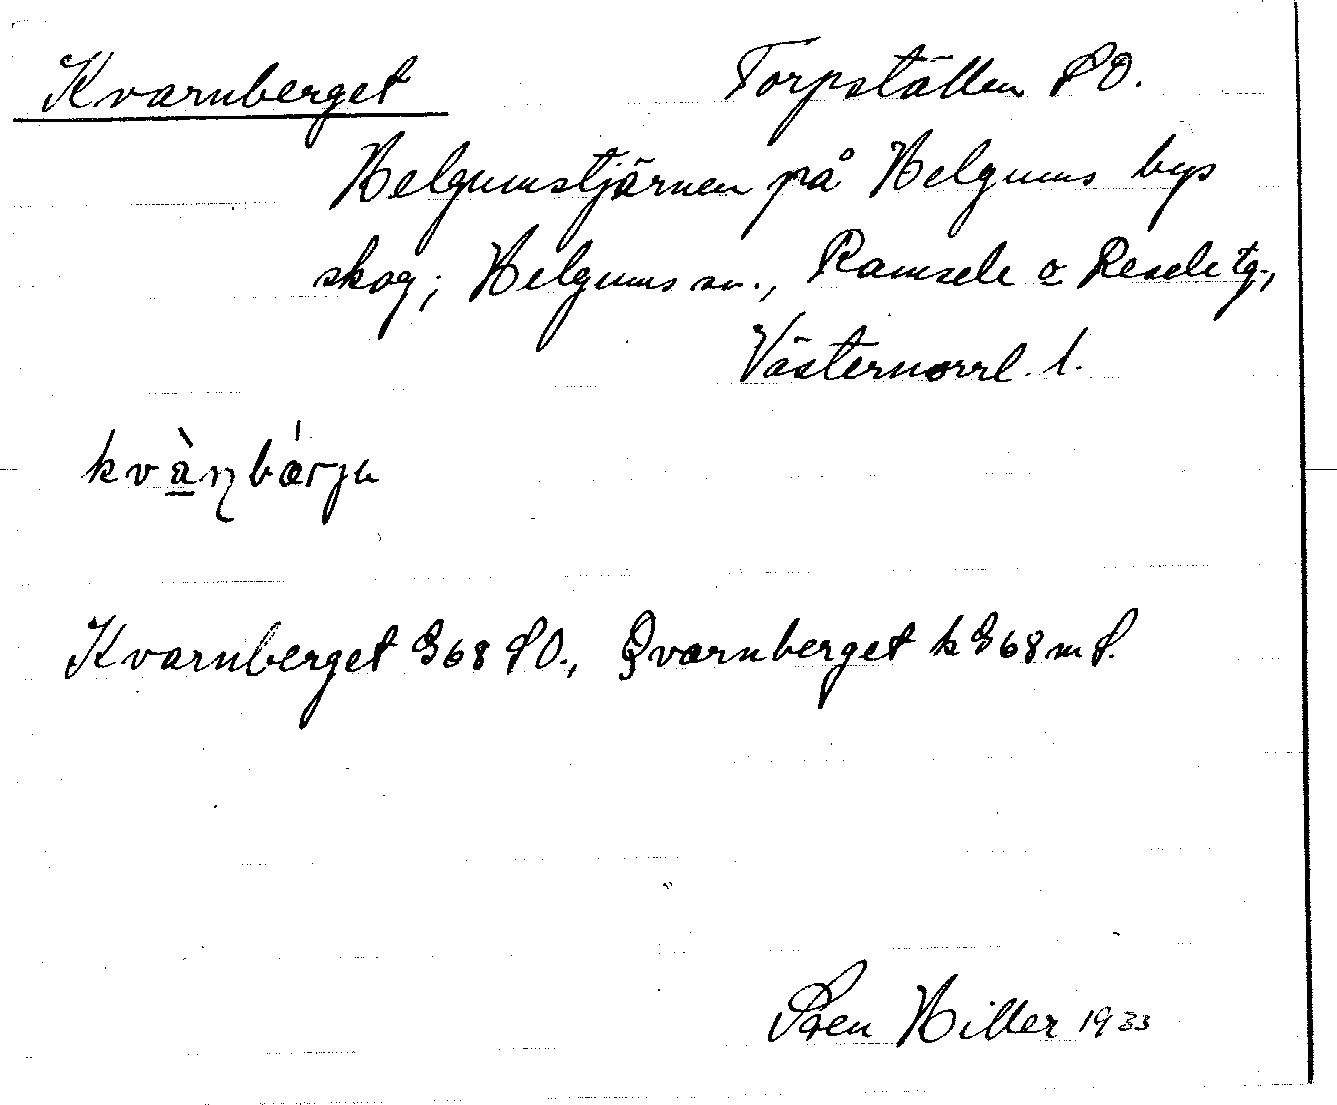 Kvarnberget Torpställen SO.
Helgumstjärnen på Helgums bys
skog; Helgums sn., Ramsele o Resele tg.,
Västernorrl. l.
kvàɳbárju
Kvarnberget G68 SO., Qvarnberget k G68 m S.
Sven Hiller 1933